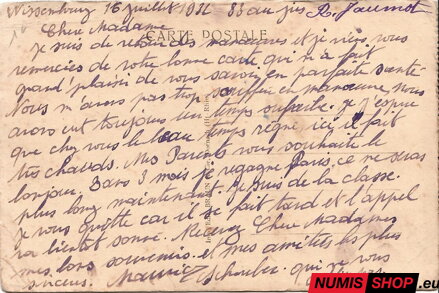 Wissembourg 16 juillet 1931
Chère Madame
CARTE POSTALE
Je suis de retour des manœuvres et je viens vous
remercier de votre bonne carte qui m'a fait
grand plaisir de vous savoir en parfaite santé
Nous n'avons pas trop souffert en manœuvre, nous
avons eut toujours un temps superbe. J'espère
que chez vous le beau temps règne ici il fait
très chauds. Mes Parents vous souhaite le
bonjour. Dans 3 mois je regagne Paris, ce ne seras
plus long maintenant. Je suis de la classe.
je vous quitte car il se fait tard et l'appel
va bientôt sonné. Recevez Chère Madame
mes bons souvenirs et mes amitiés les plus
sincères. Maurice qui ne vous
NUMIS SHOP.eu